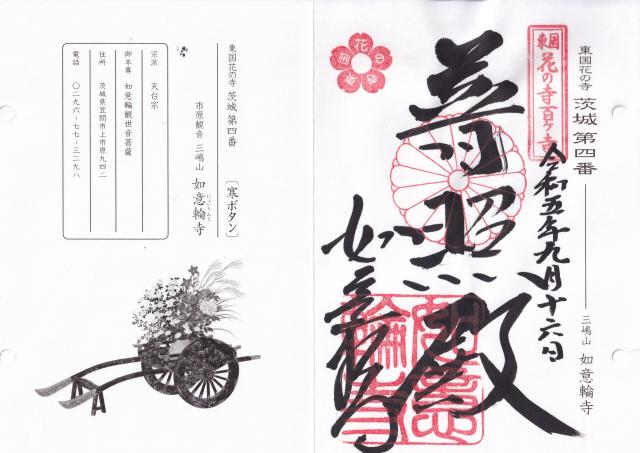 東国花の寺 茨城 第四番
三嶋山 如意輪寺
東国
花の寺百ヶ寺
令和五年九月十六日
普照殿
如意輪寺
東国花の寺 茨城 第四番
市原観音 三嶋山 如意輪寺
にょいりんじ
〔寒ボタン〕
宗派 天台宗
御本尊 如意輪観世音菩薩
住所 茨城県笠間市上市原九四二
電話 〇二九六-七七-三二九八